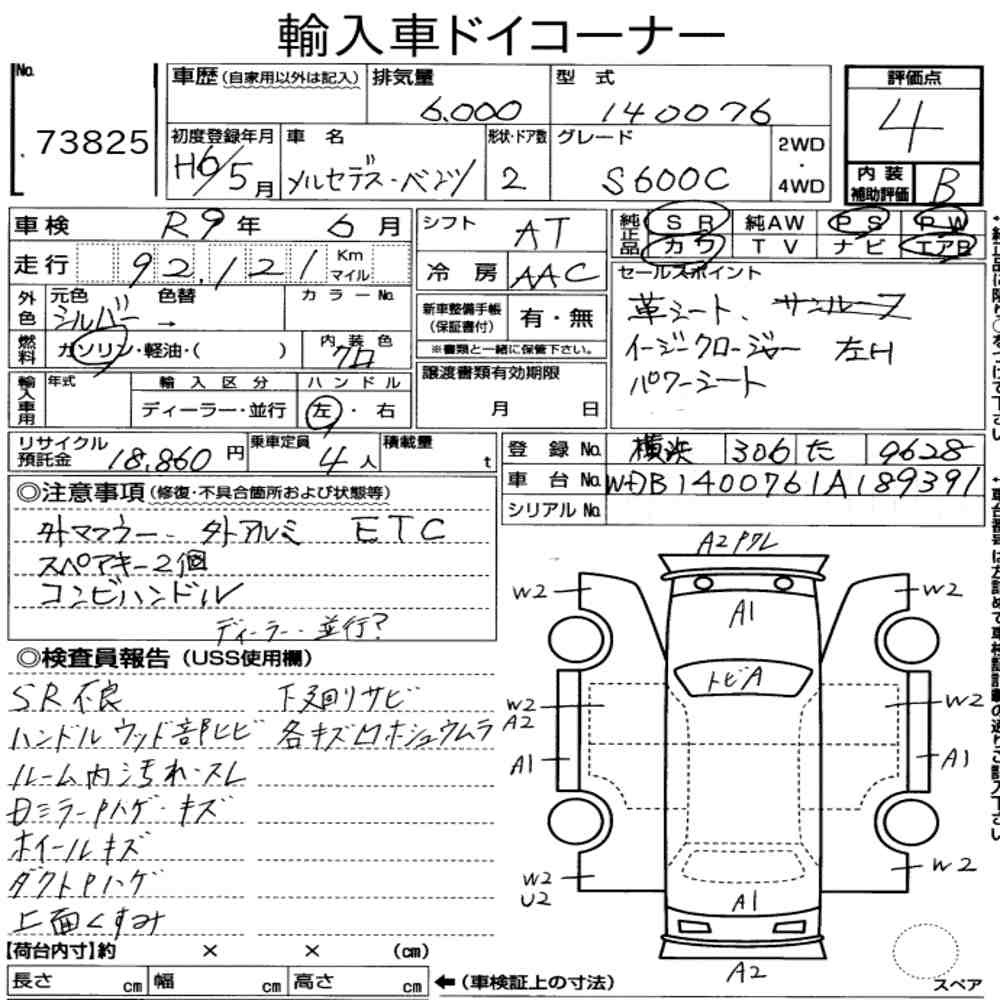 輸入車ドイコーナー
No.
73825
車歴(自家用以外は記入)
排気量
6,000
型式
140076
評価点
4
初度登録年月
H6/5月
車名
メルセデス・ベンツ
形状・ドア数
2
グレード
S600C
2WD
・
4WD
内装
補助評価
B
車検
R9年 6月
シフト
AT
純正品
SR 純AW PS PW
カワ TV ナビ エアB
走行
92,121
Km
マイル
冷房
AAC
セールスポイント
革シート、サンルーフ
イージークロージャー 左H
パワーシート
外色
元色
シルバー
色替
→
カラーNo.
新車整備手帳
(保証書付)
有・無
※書類と一緒に保管下さい。
燃料
ガソリン・軽油・( )
内装色
クロ
輸入車用
年式
輸入区分
ディーラー・並行
ハンドル
左・右
譲渡書類有効期限
月 日
リサイクル
預託金
18,860円
乗車定員
4人
積載量
t
登録No.
横浜 306 た 9628
車台No.
WDB1400761A189391
シリアルNo.
◎注意事項(修復・不具合箇所および状態等)
外マフラー、外アルミ ETC
スペアキー2個
コンビハンドル
ディーラー・並行?
◎検査員報告(USS使用欄)
SR不良
ハンドルウッド部ヒビ
ルーム内汚れ・スレ
Dミラー Pハゲ・キズ
ホイールキズ
ダクトPハゲ
上面くすみ
下廻りサビ
各キズ凹ホシュウムラ
A2 Pワレ
W2
W2
A1
トビA
W2
A2
W2
A1
A1
W2
U2
W2
A1
A2
【荷台内寸】約 × × (cm)
長さ cm 幅 cm 高さ cm
←(車検証上の寸法)
スペア